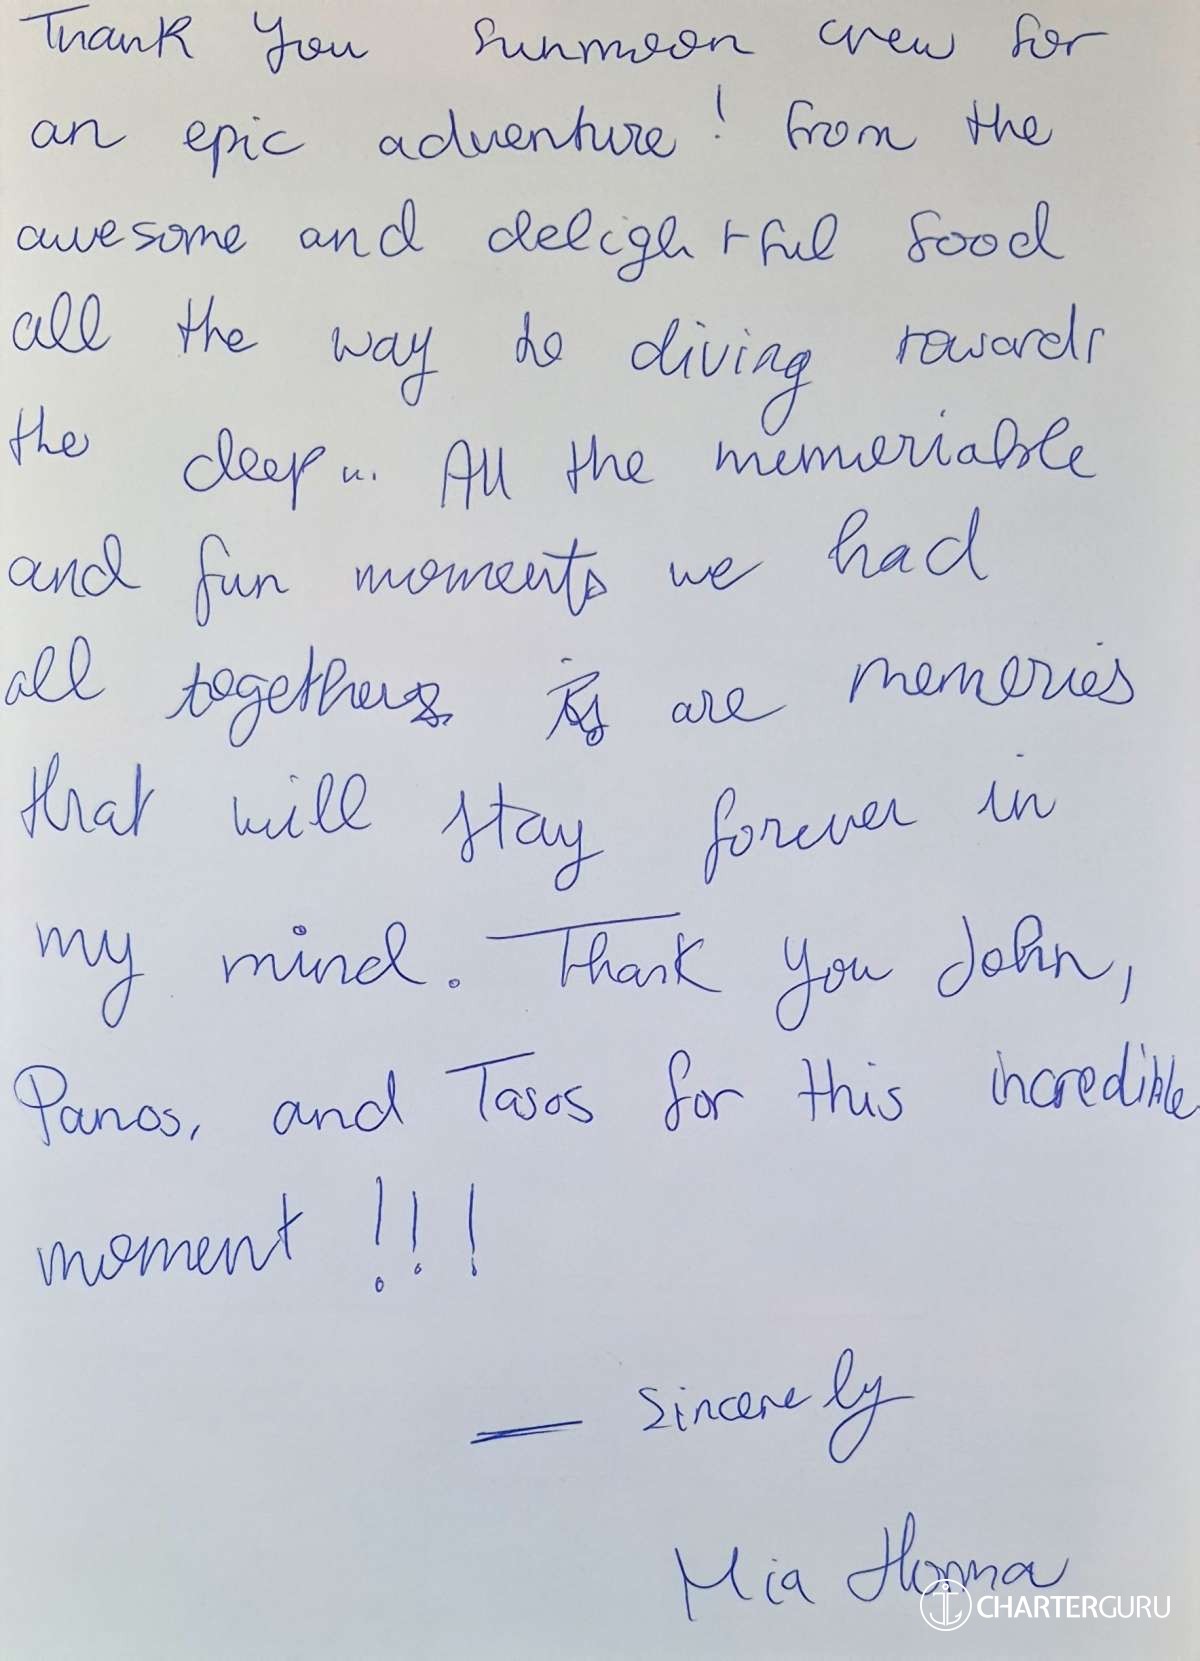 Thank You Sunmoon crew for
an epic adventure! from the
awesome and delightful food
all the way to diving towards
the deep... All the memoriable
and fun moments we had
all together are memories
that will stay forever in
my mind. Thank You John,
Panos, and Tasos for this incredible
moment !!!
— Sincerely
Mia
CHARTERGURU